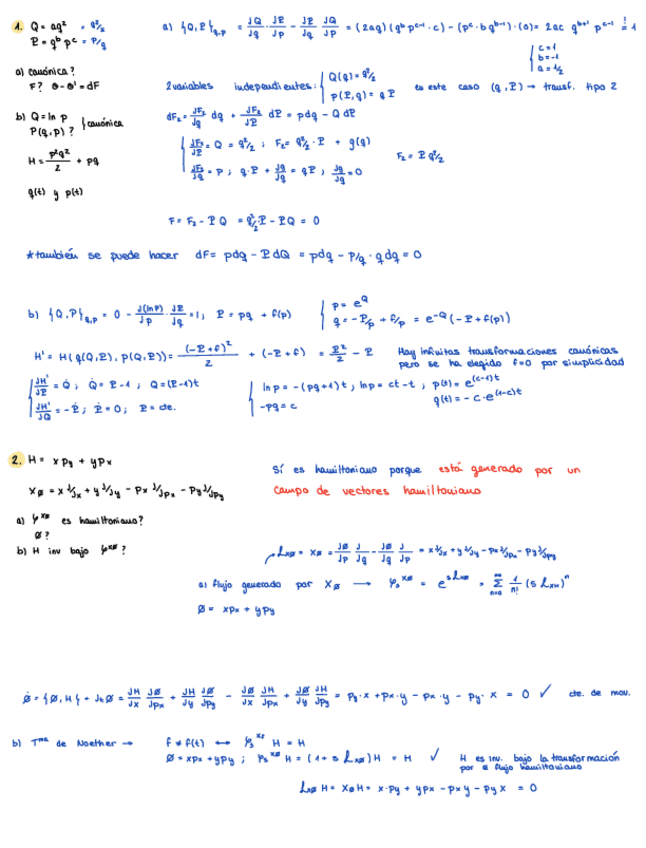 1. Q = aq² = q²/2
P = q^b p^c = P/q
a) canónica?
F? θ - θ' = dF
b) Q = ln p
P(q,p)? } canónica
H = p²q²/2 + pq
q(t) y p(t)
a) {Q,P}q,p = JQ/Jq · JP/Jp - JP/Jq JQ/Jp = (2aq)(q^b p^c-1 · c) - (p^c · b q^b-1) · (0) = 2ac q^b+1 p^c-1 =! 1
{ c = 1
b = -1
a = 1/2
2 variables independientes: { Q(q) = q²/2
p(P,q) = qP
en este caso (q,P) → transf. tipo 2
dF₂ = JF₂/Jq dq + JF₂/JP dP = pdq - Q dP
{ JF₂/JP = Q = q²/2 ; F₂ = q²/2 · P + g(q)
JF₂/Jq = p ; q·P + Jg/Jq = qP ; Jg/Jq = 0
F₂ = P q²/2
F = F₂ - PQ = q²/2 · P - PQ = 0
*también se puede hacer dF = pdq - PdQ = pdq - P/q · qdq = 0
b) {Q,P}q,p = 0 - J(ln p)/Jp · JP/Jq = 1 ; P = pq + f(p)
{ p = e^Q
q = -P/p + f/p = e^-Q (-P + f(p))
H' = H(q(Q,P), p(Q,P)) = (-P+f)²/2 + (-P+f) = P²/2 - P
Hay infinitas transformaciones canónicas
pero se ha elegido f=0 por simplicidad
{ JH'/JP = Q̇ ; Q̇ = P-1 ; Q = (P-1)t
JH'/JQ = -Ṗ ; Ṗ = 0 ; P = cte.
{ ln p = -(pq+1)t ; ln p = ct - t ; p(t) = e^(c-1)t
-pq = c
q(t) = -c · e^(1-c)t
2. H = x py + y px
XØ = x J/Jx + y J/Jy - px J/Jpx - py J/Jpy
a) φ^XØ es hamiltoniano?
Ø?
b) H inv bajo φ^XØ?
Sí es hamiltoniano porque está generado por un
campo de vectores hamiltoniano
LXØ = XØ = JØ/Jp J/Jq - JØ/Jq J/Jp = x J/Jx + y J/Jy - px J/Jpx - py J/Jpy
a) flujo generado por XØ → φs^XØ = e^sLXØ = Σ n=0 ∞ 1/n! (s LXH)^n
Ø = xpx + ypy
Ø̇ = {Ø,H} + JtØ = JH/Jx JØ/Jpx + JH/Jy JØ/Jpy - JØ/Jx JH/Jpx + JØ/Jy JH/Jpy = py·x + px·y - px·y - py·x = 0 ✓ cte. de mov.
b) Tma de Noether → f ≠ f(t) ↔ φs^Xf H = H
Ø = xpx + ypy ; φs^XØ H = (1 + s LXØ)H = H ✓ H es inv. bajo la transformación
por el flujo hamiltoniano
LXØ H = XØ H = x·py + ypx - px y - py x = 0